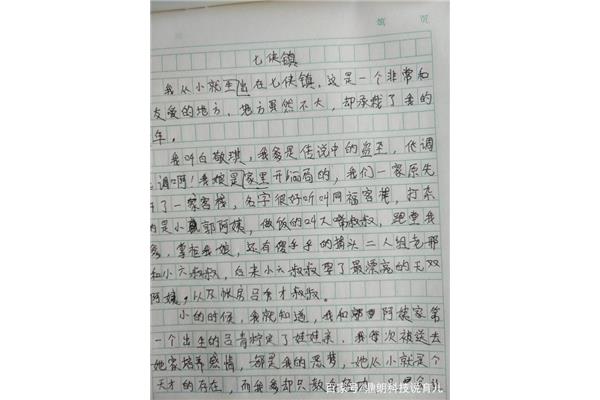 第 页
七侠镇
我从小就生出在七侠镇,这是一个非常和
友爱的地方,地方虽然不大,却承载了我的
年。
我叫白敬琪,我爹是传说中的盗圣,低调
调啊!我娘是家里开镖局的,我们一家原先
开了一家客栈,名字很好听叫同福客栈,打杂
的是小郭阿姨,做饭的叫大嘴叔叔,跑堂我
爹,掌柜我娘,还有傻乎乎的捕头二人组老邢
和小六叔叔,后来小六叔叔娶了最漂亮的无双
阿姨,以及帐房吕秀才叔叔。
小的时候,我就知道,我和郭阿姨家第
一个出生的吕青柠定了娃娃亲,我每次被送去
她家培养感情,都是我的恶梦,她从小就是个
天才的存在,而我爹却只教
百家号/鼎朗科技说育儿